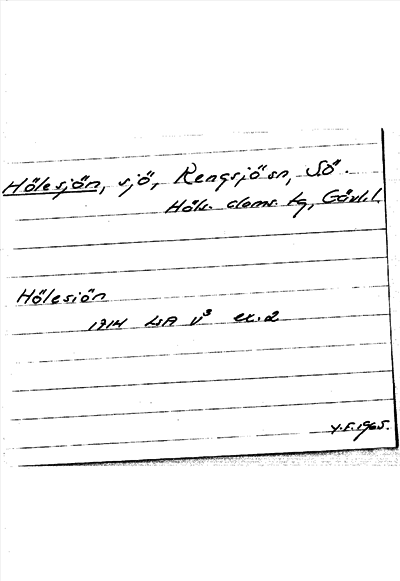 Hölesjön, sjö, Rengsjösn, Sö.
Häls. doms. tg, Gävl.l.
Hölesiön
1914 LSA V³ ex. 2
Y.F. 1965.